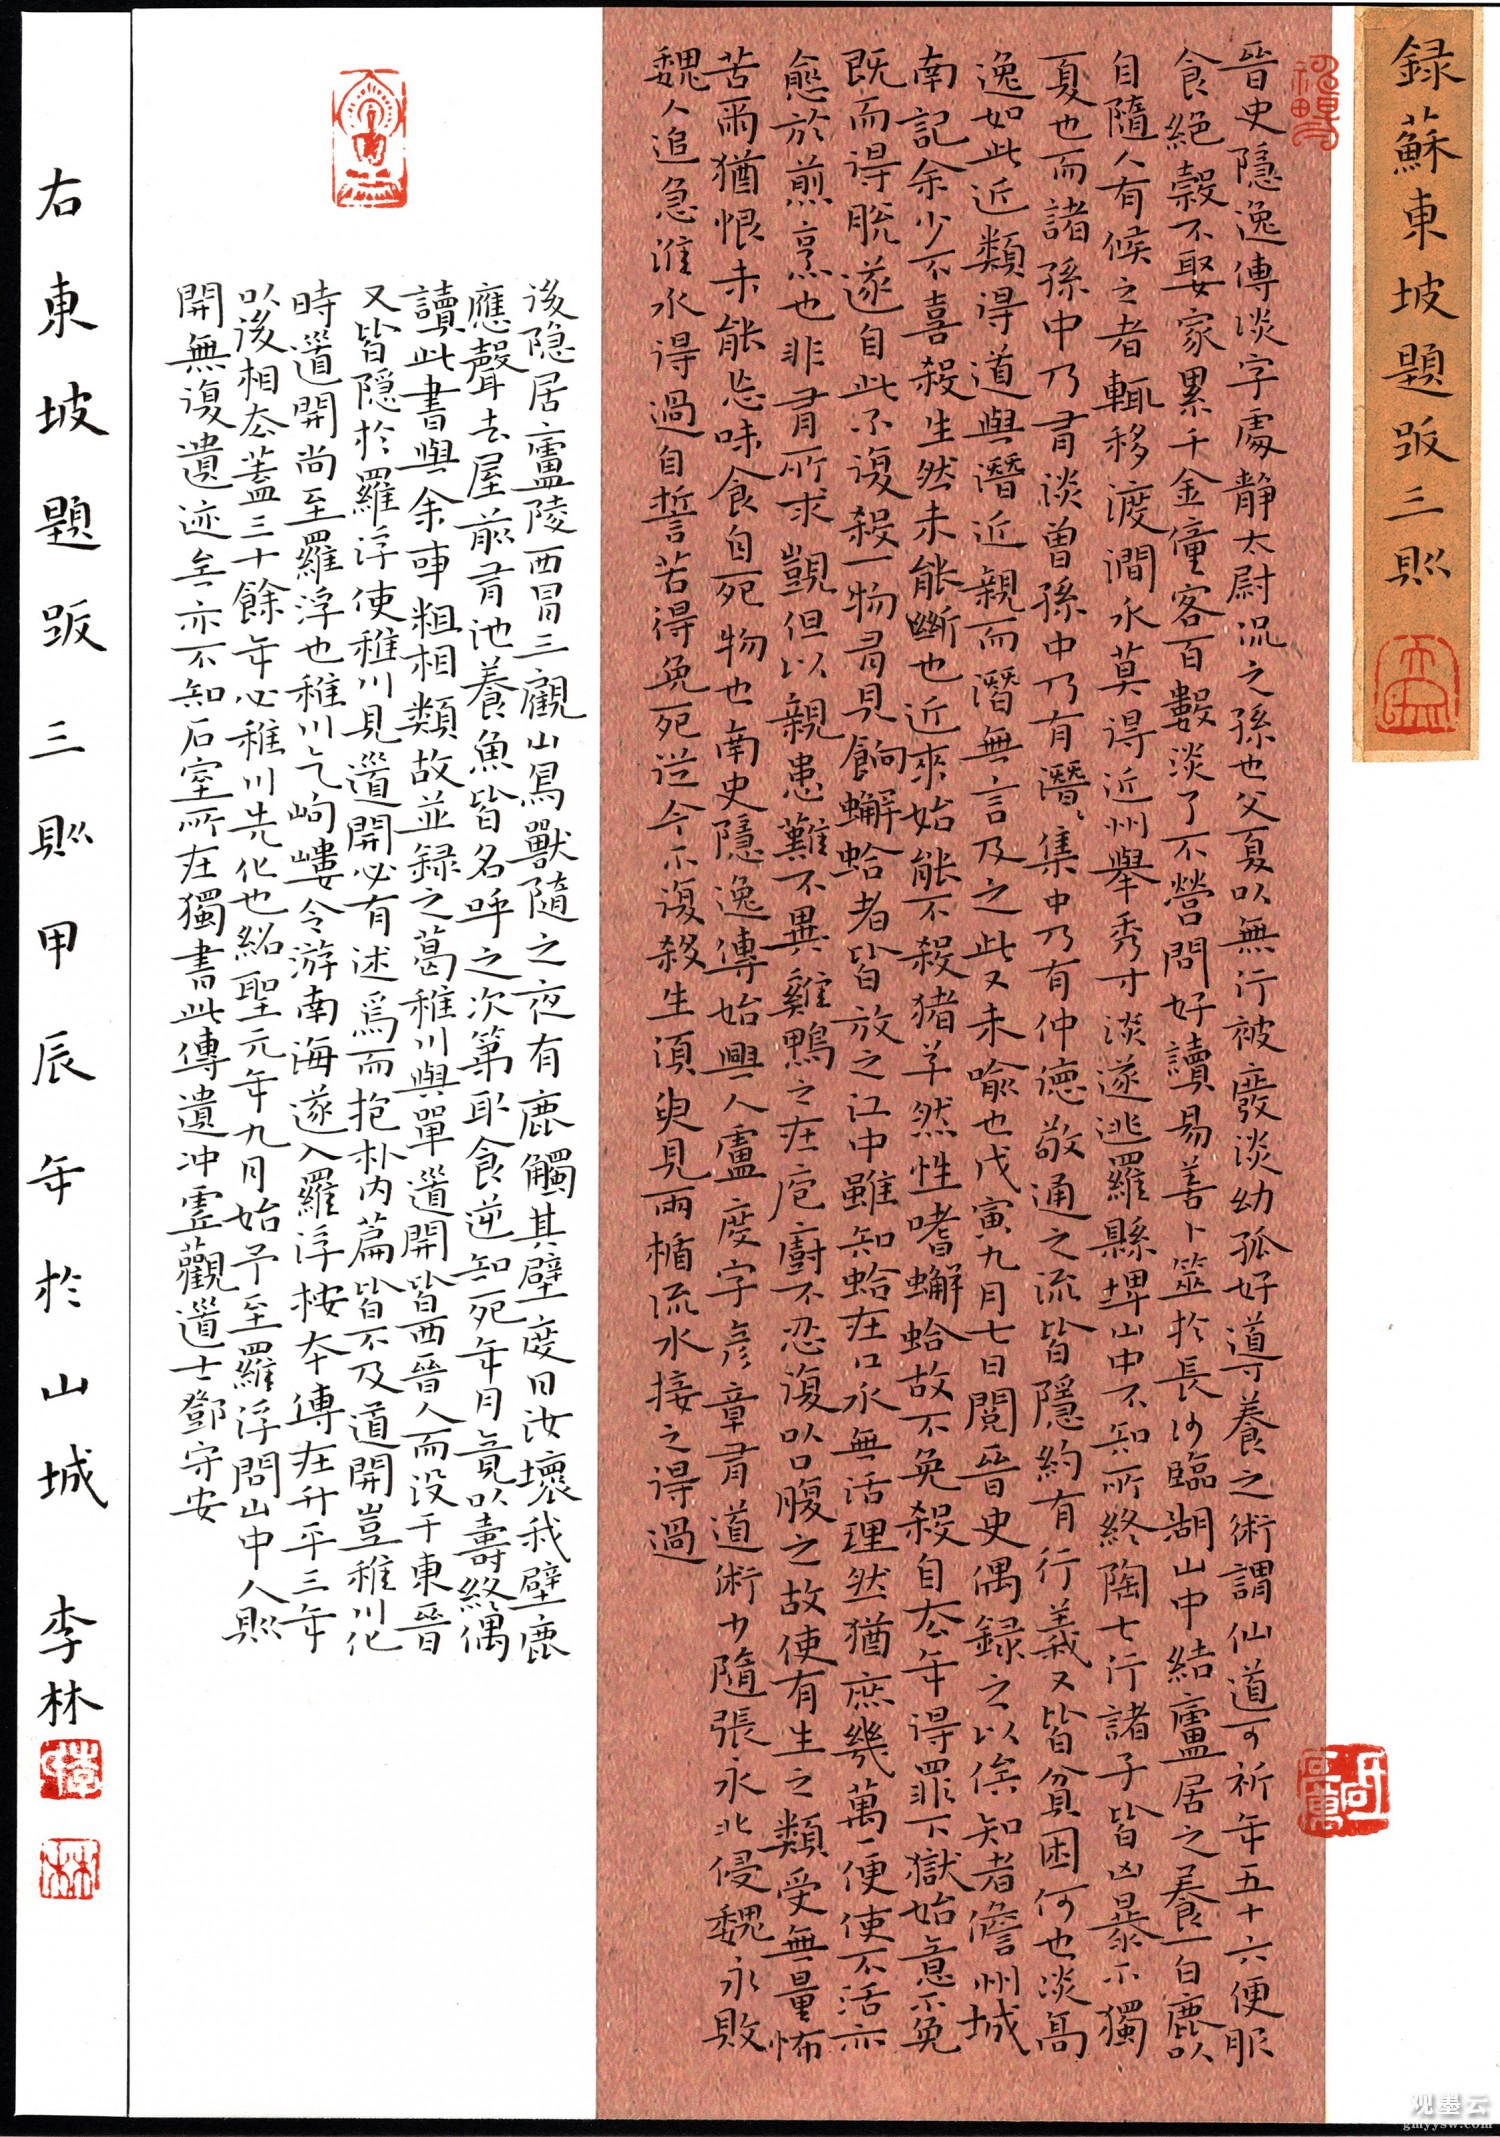 録蘇東坡題跋三則
晉史隱逸傳淡字處静太尉況之孫也父夏以無行被廢淡幼孤好導養之術謂仙道可祈年五十六便服
食絕榖不娶家累千金僮客百數淡了不營問好讀易善卜筮於長沙臨湖山中結廬居之養一白鹿以
自隨人有候之者輒移渡澗水莫得近州舉秀才淡遂逃羅縣埤山中不知所終陶士行諸子皆凶暴不獨
夏也而諸孫中乃有淡曾孫中乃有潛潛集中乃有仲德敬通之流皆隱約有行義又皆貧困何也淡高
逸如此近類得道與潛近親而潛無言及之此又未喻也戊寅九月七日閱晉史偶録之以俟知者儋州城
南記余少不喜殺生然未能斷也近來始能不殺猪羊然性嗜蠏蛤故不免殺自去年得罪下獄始意不免
既而得脫遂自此不復殺一物有見餉蠏蛤者皆放之江中雖知蛤在江水無活理然猶庶幾萬一便使不活亦
愈於煎烹也非有所求覬但以親患難不異雞鴨之在庖廚不忍復以口腹之故使有生之類受無量怖
苦爾猶恨未能忘味食自死物也南史隱逸傳始興人盧度字彥章有道術少隨張永北侵魏永敗
魏人追急淮水得過自誓若得免死從今不復殺生須臾見兩楯流水接之得過
後隱居廬陵西昌三顧山鳥獸隨之夜有鹿觸其壁度曰汝壞我壁鹿
應聲去屋前有池養魚皆名呼之次第取食逆知死年月竟以壽終偶
讀此書與余事粗相類故並録之葛稚川與單道開皆西晉人而没于東晉
又皆隱於羅浮使稚川見道開必有述焉而抱朴內篇皆不及道開豈稚川化
時道開尚至羅浮也稚川乞岣嶁令游南海遂入羅浮按本傳在升平三年
以後相去蓋三十餘年必稚川先化也紹聖元年九月始予至羅浮問山中人則
開無復遺迹矣亦不知石室所在獨書此傳遺冲虛觀道士鄧守安
右東坡題跋三則甲辰年於山城 李林
观墨云
gmyysw.com